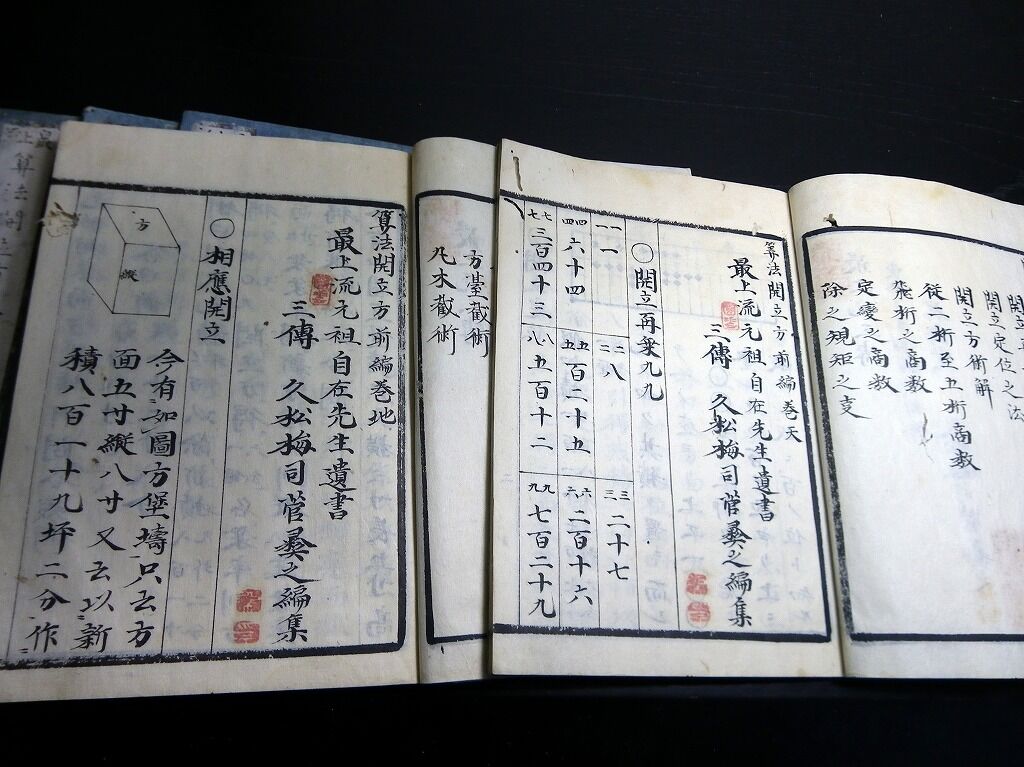 開立定位之法
開立方術解
従二術至五術商数
飛術之商数
定變之商数
除之規矩之支
算法開立方前編巻天
最上流元祖自在先生遺書
三傳 久松梅司菅彜之編集
〇開立再乗九九
一一 一 二二 八 三三 二十七
四四 六十四 五五 百二十五 六六 二百十六
七七 三百四十三 八八 五百十二 九九 七百二十九
方臺截術
丸木截術
算法開立方前編巻地
最上流元祖自在先生遺書
三傳 久松梅司菅彜之編集
〇相應開立
方
縦
今有如圖方堡壔只云方
面五寸縦八寸又云以新
積八百一十九坪二分作